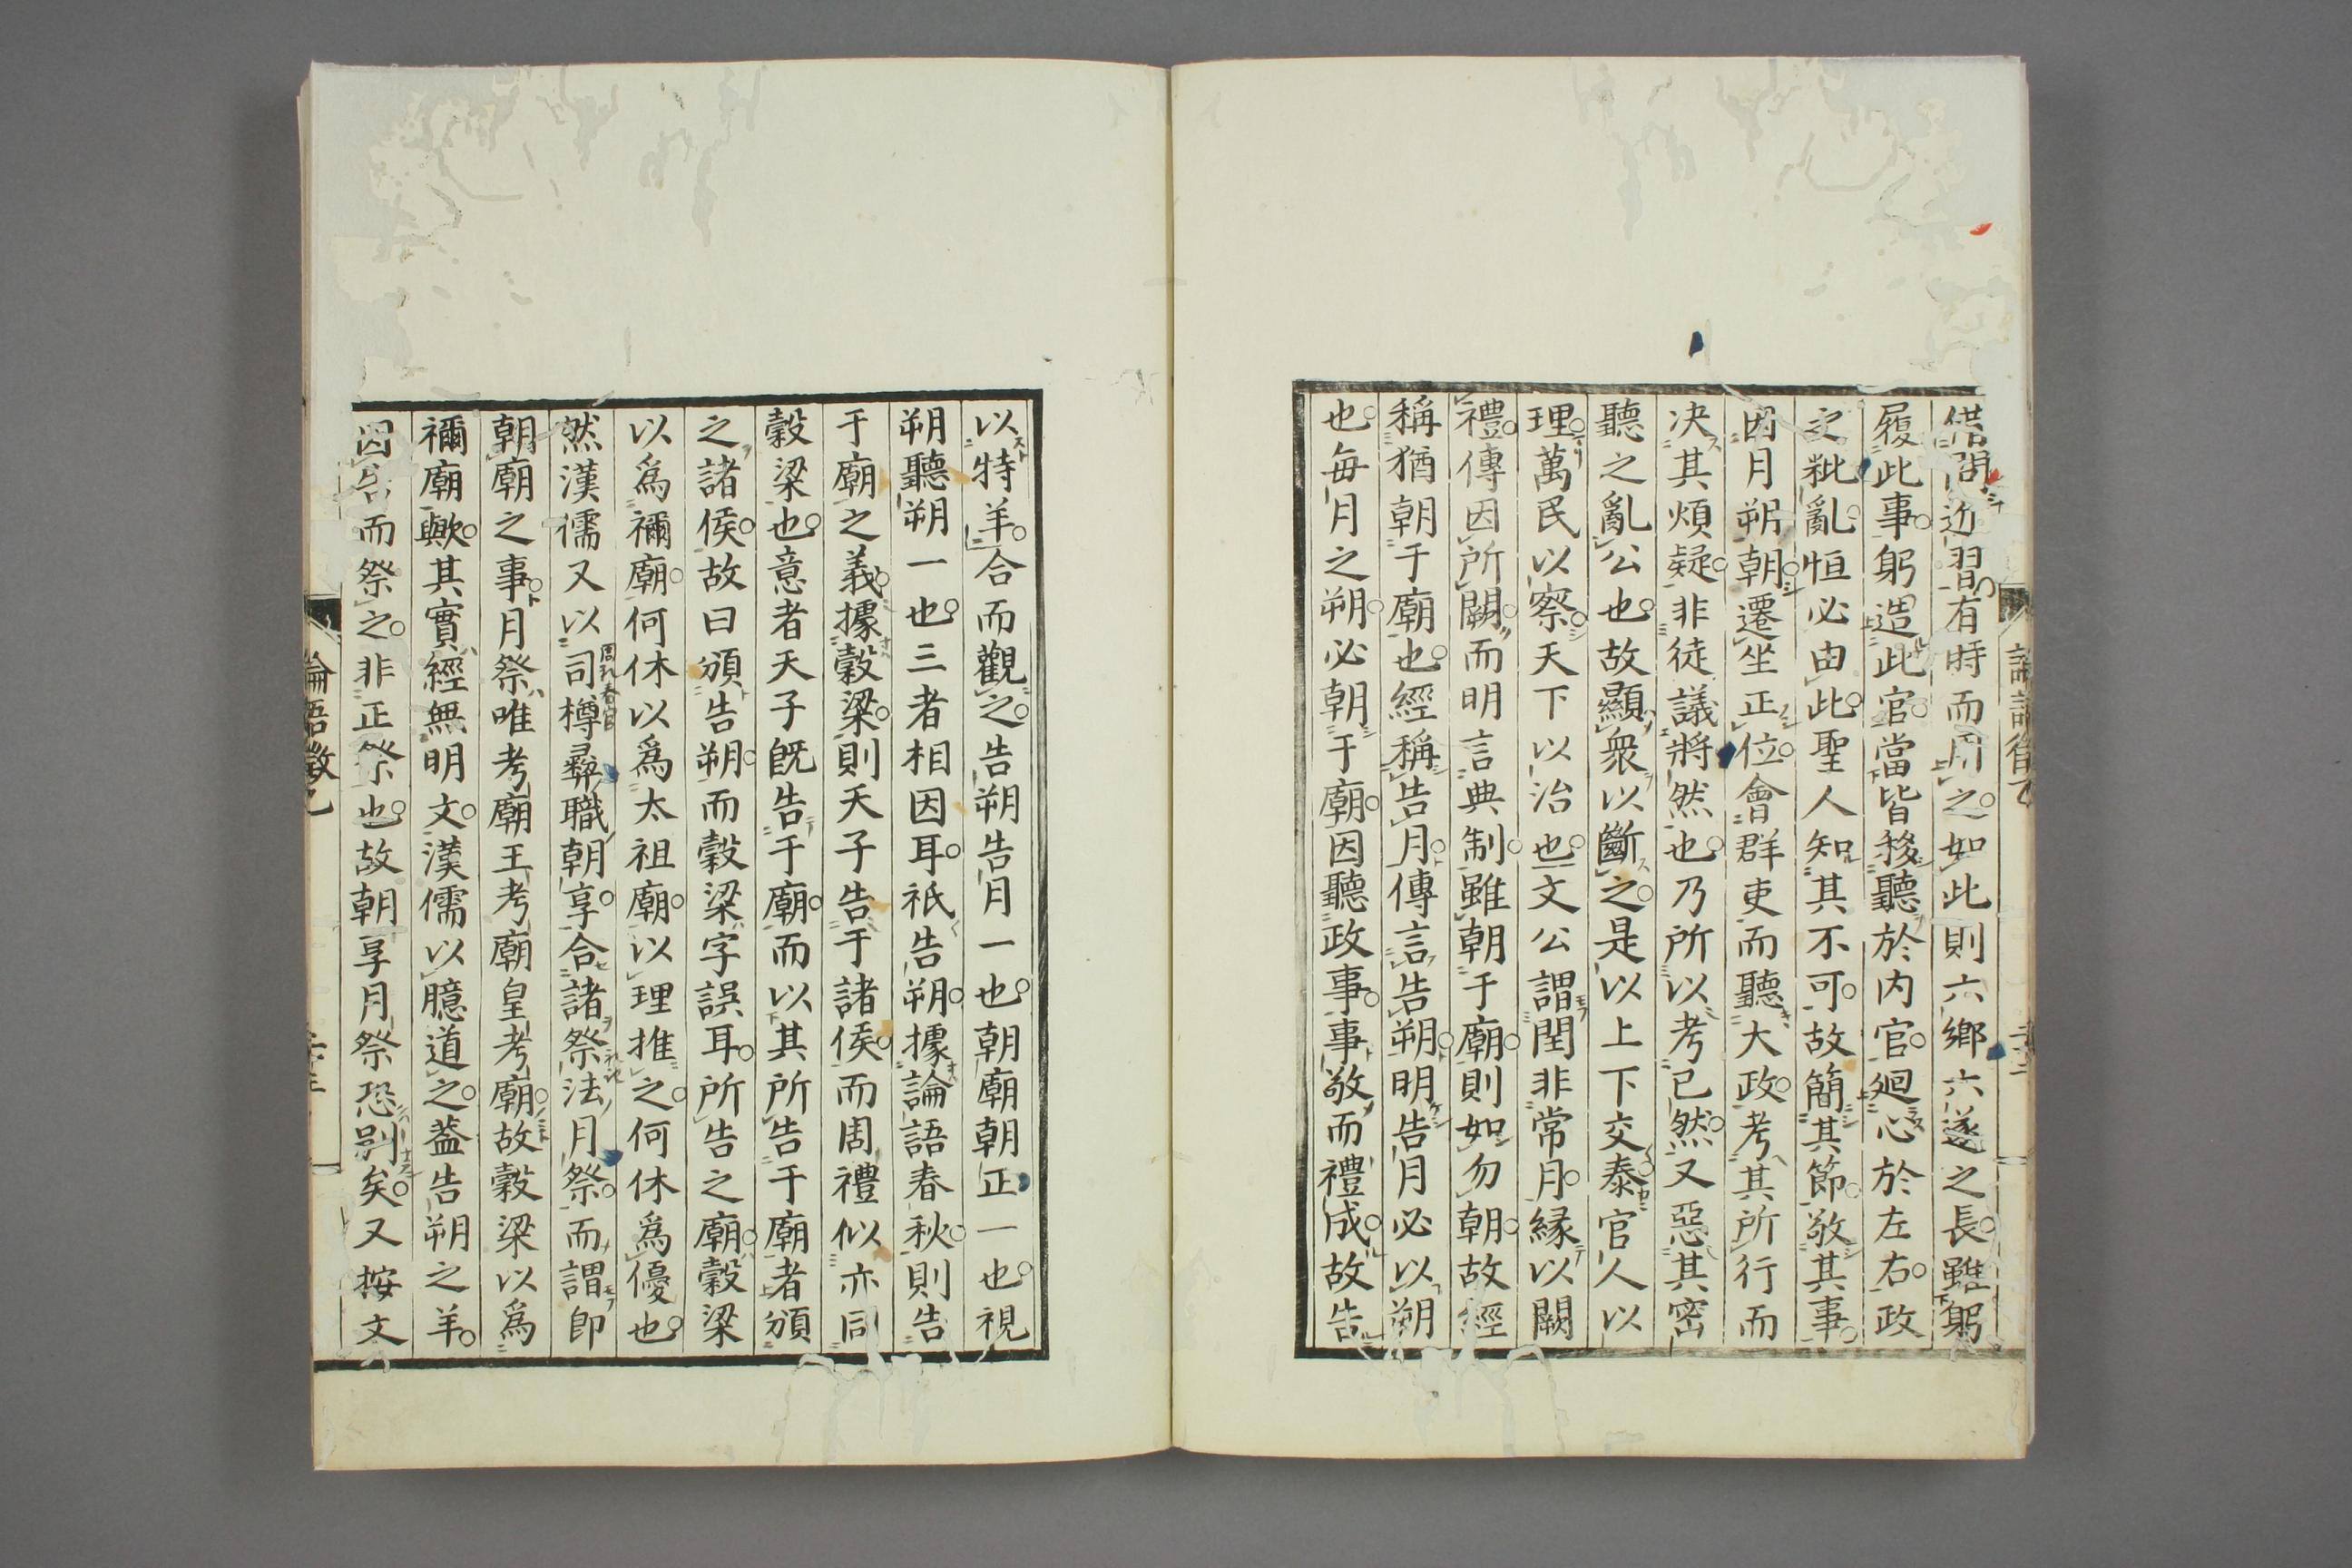 借問近習有時而用之如此則六鄉六遂之長雖躬
履此事躬造此官當皆移聽於内官廻心於左右政
之粃亂恒必由此聖人知其不可故簡其節敬其事
因月朔朝遷坐正位會群吏而聽大政考其所行而
决其煩疑非徒議將然也乃所以考已然又惡其密
聽之亂公也故顯衆以斷之是以上下交泰官人以
理萬民以察天下以治也文公謂閏非常月縁以闕
禮傳因所闕而明言典制雖朝于廟則如勿朝故經
稱猶朝于廟也經稱告月傳言告朔明告月必以朔
也毎月之朔必朝于廟因聽政事事敬而禮成故告
以特羊合而觀之告朔告月一也朝廟朝正一也視
朔聽朔一也三者相因耳祇告朔據論語春秋則告
于廟之義據穀梁則天子告于諸侯而周禮似亦同
穀梁也意者天子既告于廟而以其所告于廟者頒
之諸侯故曰頒告朔而穀梁字誤耳所告之廟穀梁
以爲禰廟何休以爲太祖廟以理推之何休爲優也
然漢儒又以司樽彛職朝享合諸祭法月祭而謂即
周礼春官
朝廟之事月祭唯考廟王考廟皇考廟故穀梁以爲
禰廟歟其實經無明文漢儒以臆道之葢告朔之羊
因告而祭之非正祭也故朝享月祭恐別矣又按文
論語徴乙